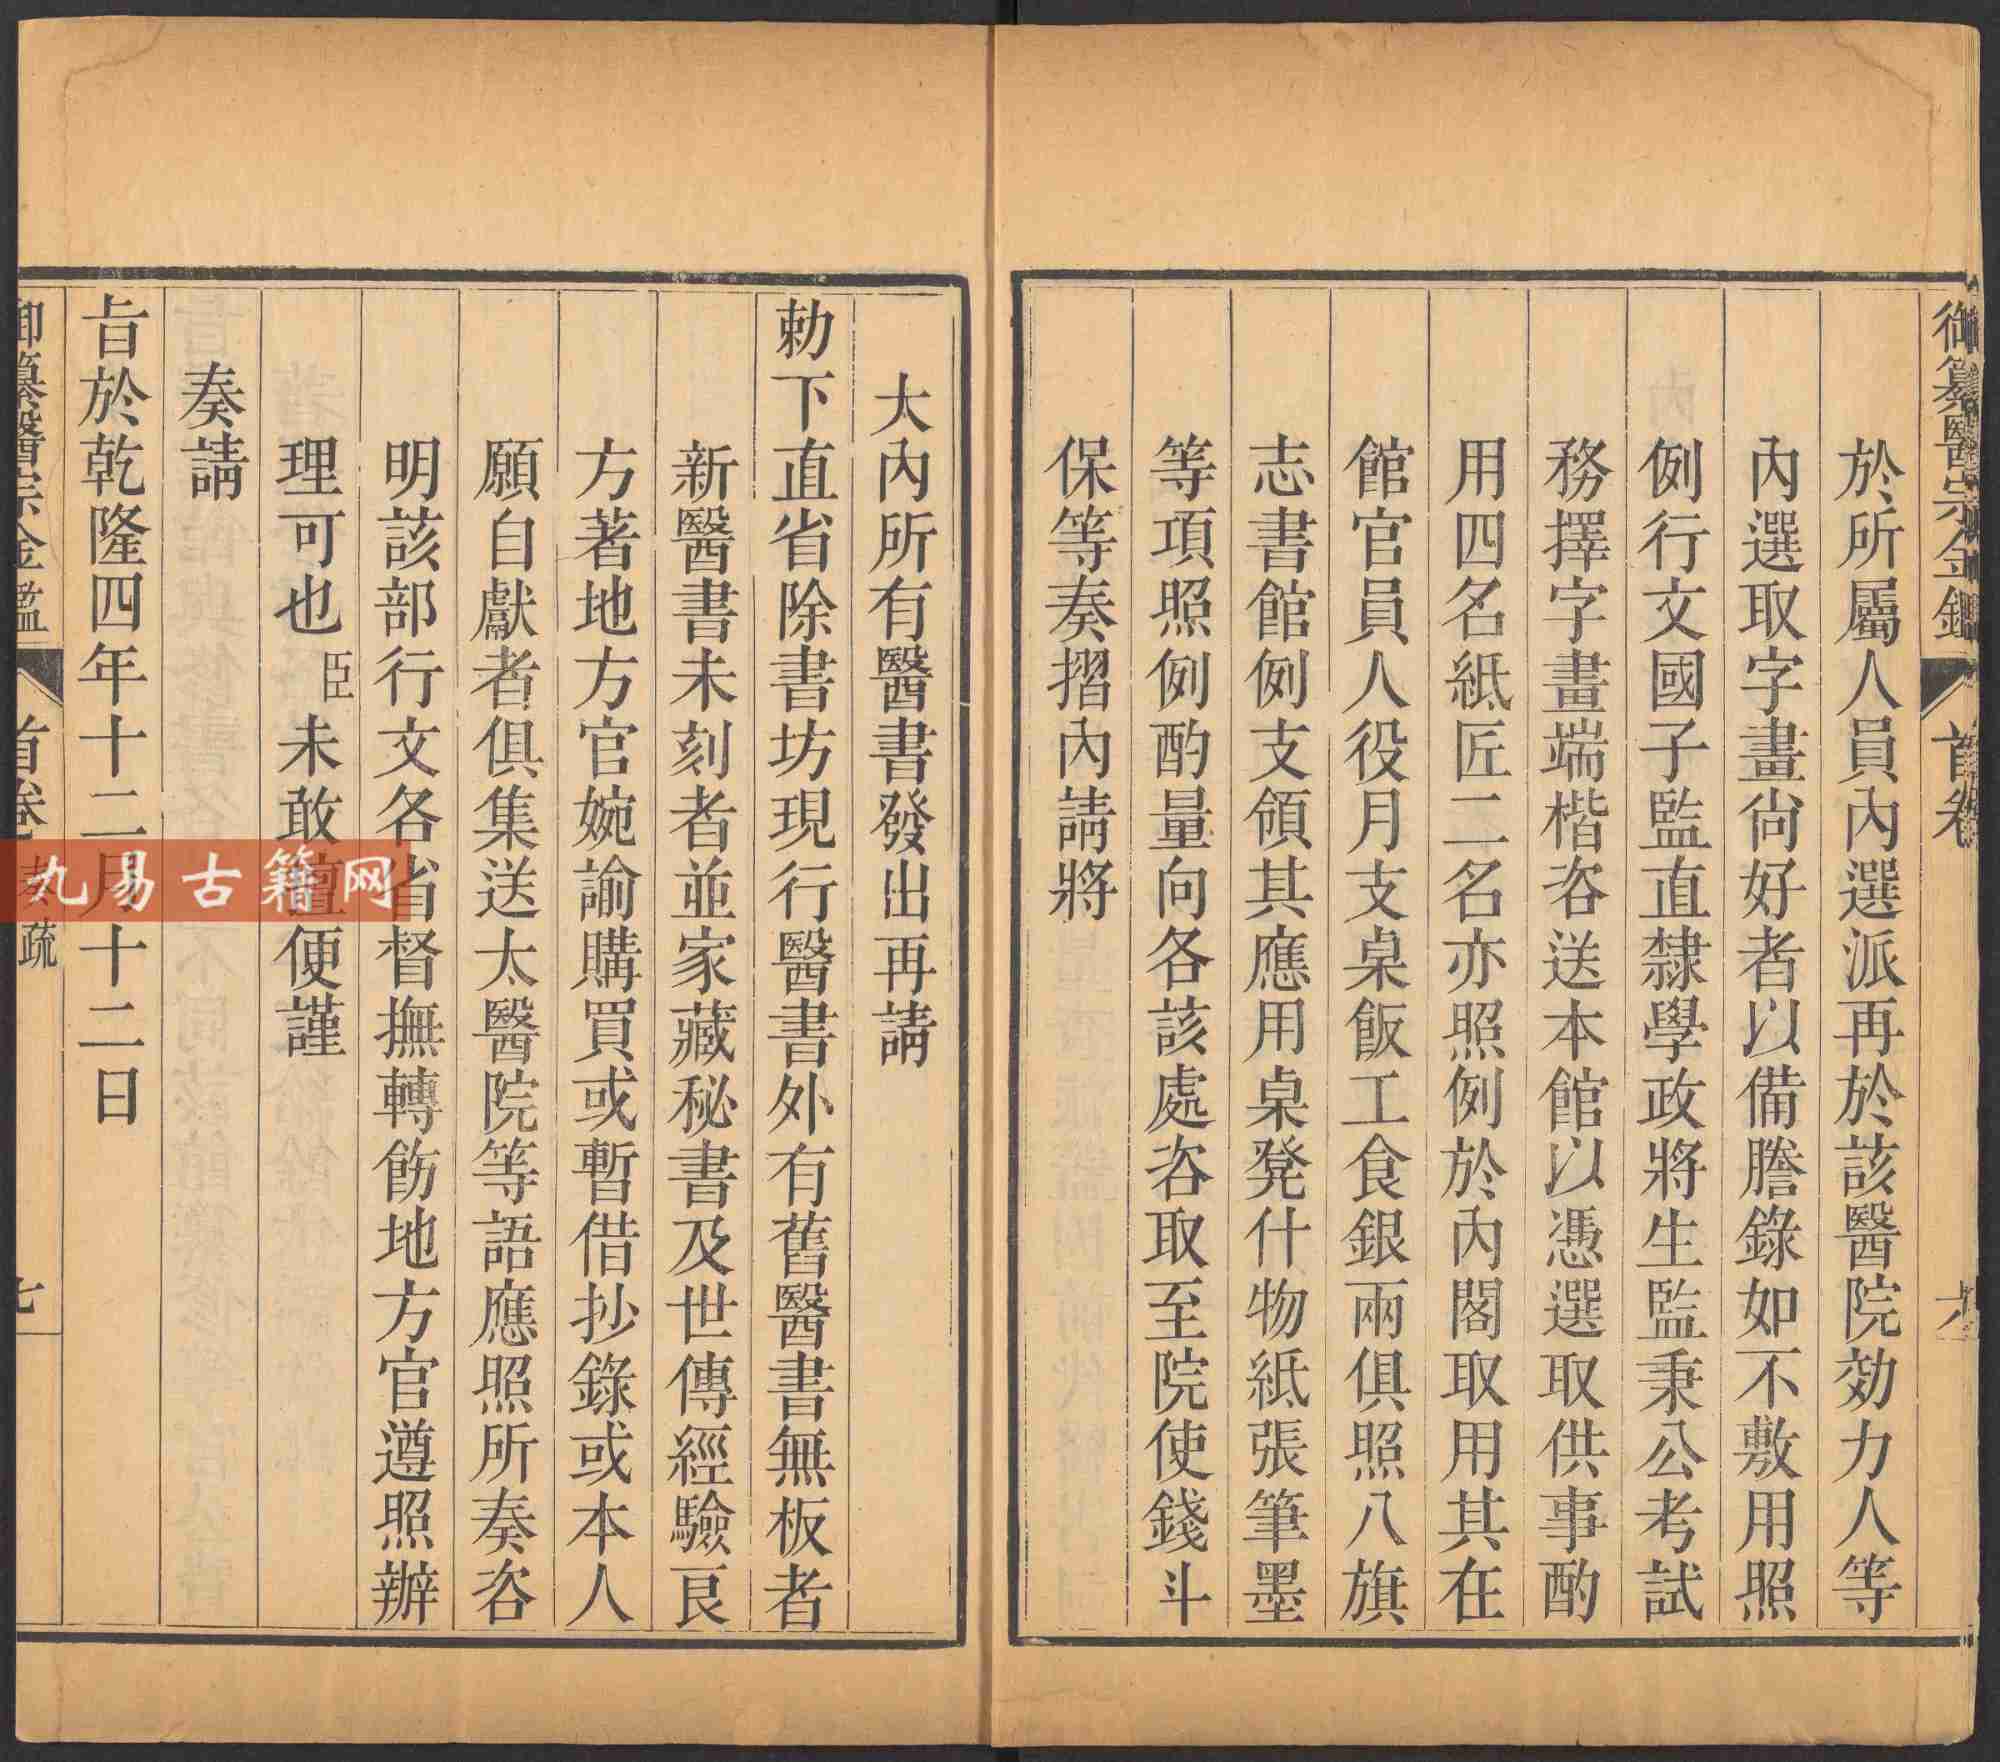 御纂醫宗金鑑 首卷 六
於所屬人員內選派再於該醫院効力人等
內選取字畫尙好者以備謄錄如不敷用照
例行文國子監直隸學政將生監秉公考試
務擇字畫端楷咨送本館以憑選取供事酌
用四名紙匠二名亦照例於內閣取用其在
館官員人役月支桌飯工食銀兩俱照八旗
志書館例支領其應用桌凳什物紙張筆墨
等項照例酌量向各該處咨取至院使錢斗
保等奏摺內請將
大內所有醫書發出再請
勅下直省除書坊現行醫書外有舊醫書無板者
新醫書未刻者並家藏秘書及世傳經驗良
方著地方官婉諭購買或暫借抄錄或本人
願自獻者俱集送太醫院等語應照所奏咨
明該部行文各省督撫轉飭地方官遵照辦
理可也臣未敢擅便謹
奏請
旨於乾隆四年十二月十二日
御纂醫宗金鑑 首卷 奏疏 七
九易古籍网